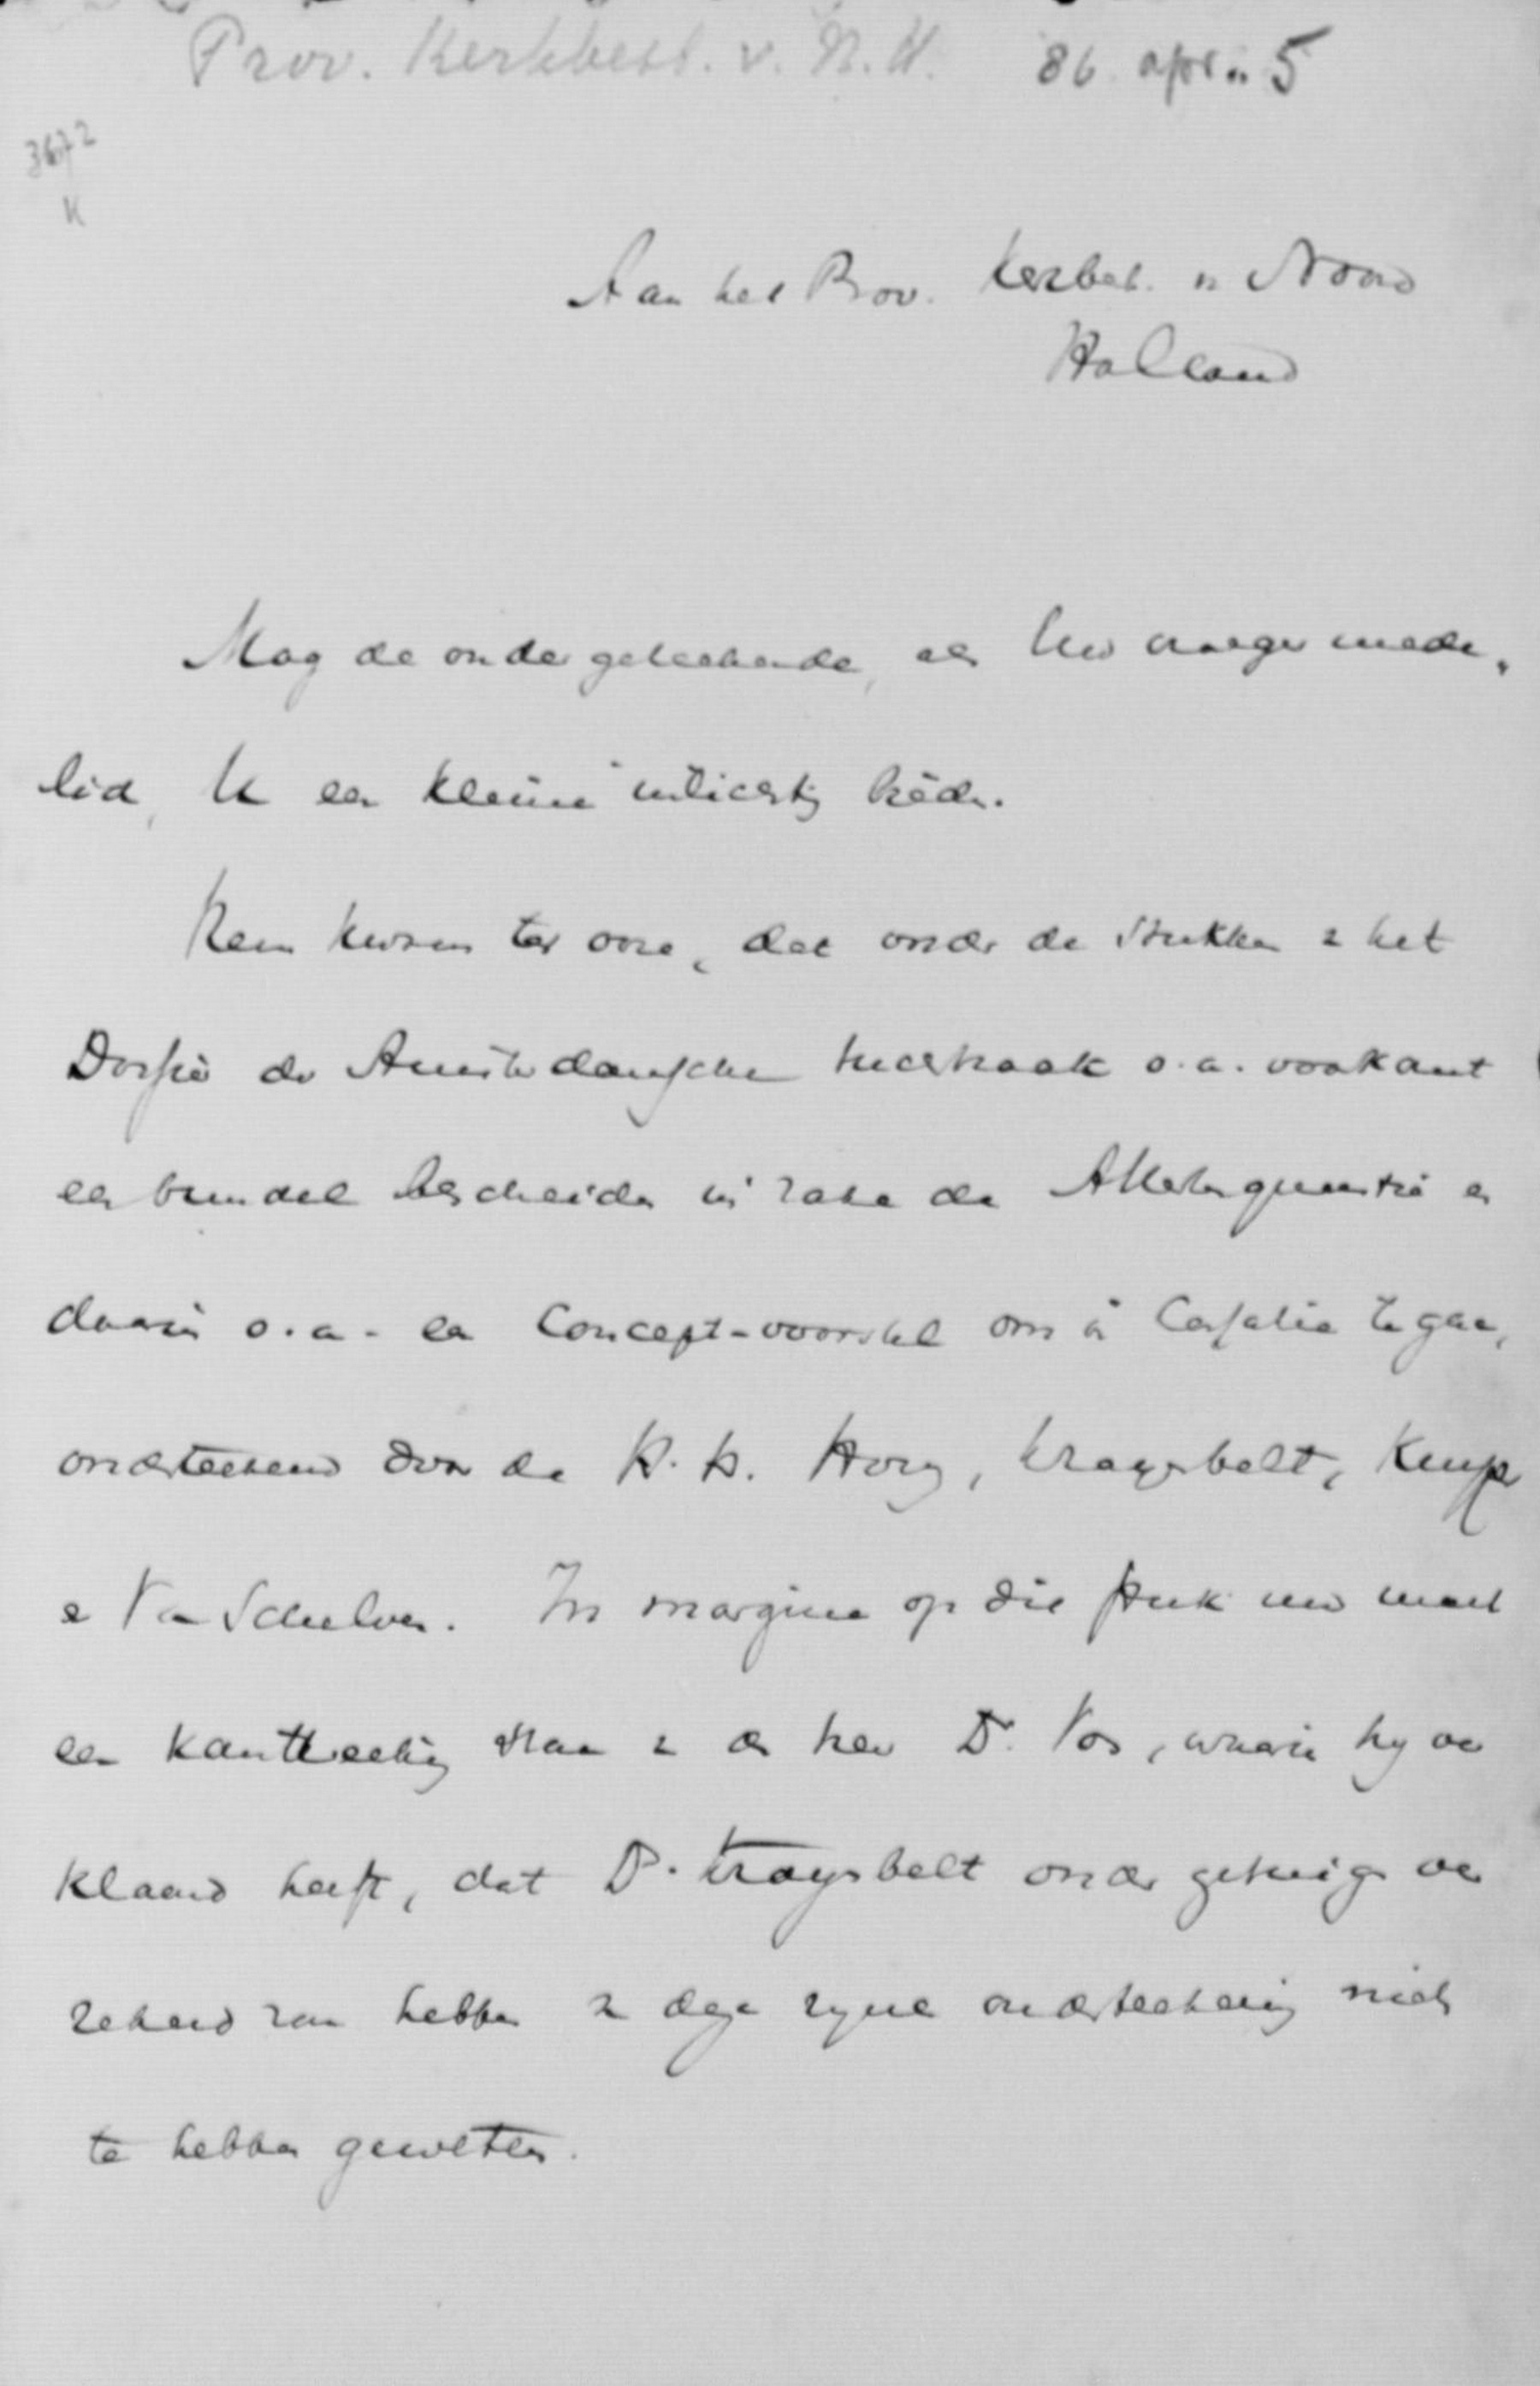 Prov. Kerkbest. v. N. H. 86 apr. 5
3672
K
Aan het Prov. Kerkbest. v Noord
Holland
Mag de ondergeteekende, als Uw vroeger mede-
lid, U een kleine inlichting bieden.
Hem kwam ter oore, dat onder de stukken v het
Dossier der Amsterdamsche tuchtzaak o.a. voorkomt
een bundel bescheiden in zake de Attestenquaestie en
daarin o.a. een Concept-voorstel om in Cassatie te gaan,
onderteekend door de H.H. Hogerzeil, Kuyper
en Van Schelven. In margine op dit stuk nu moet
een kantteekening staan v de heer Dr. Vos, waarin hij ver
klaard heeft, dat Ds. onder getuigen ver
zekerd zou hebben v deze zijne onderteekening niets
te hebben geweten.